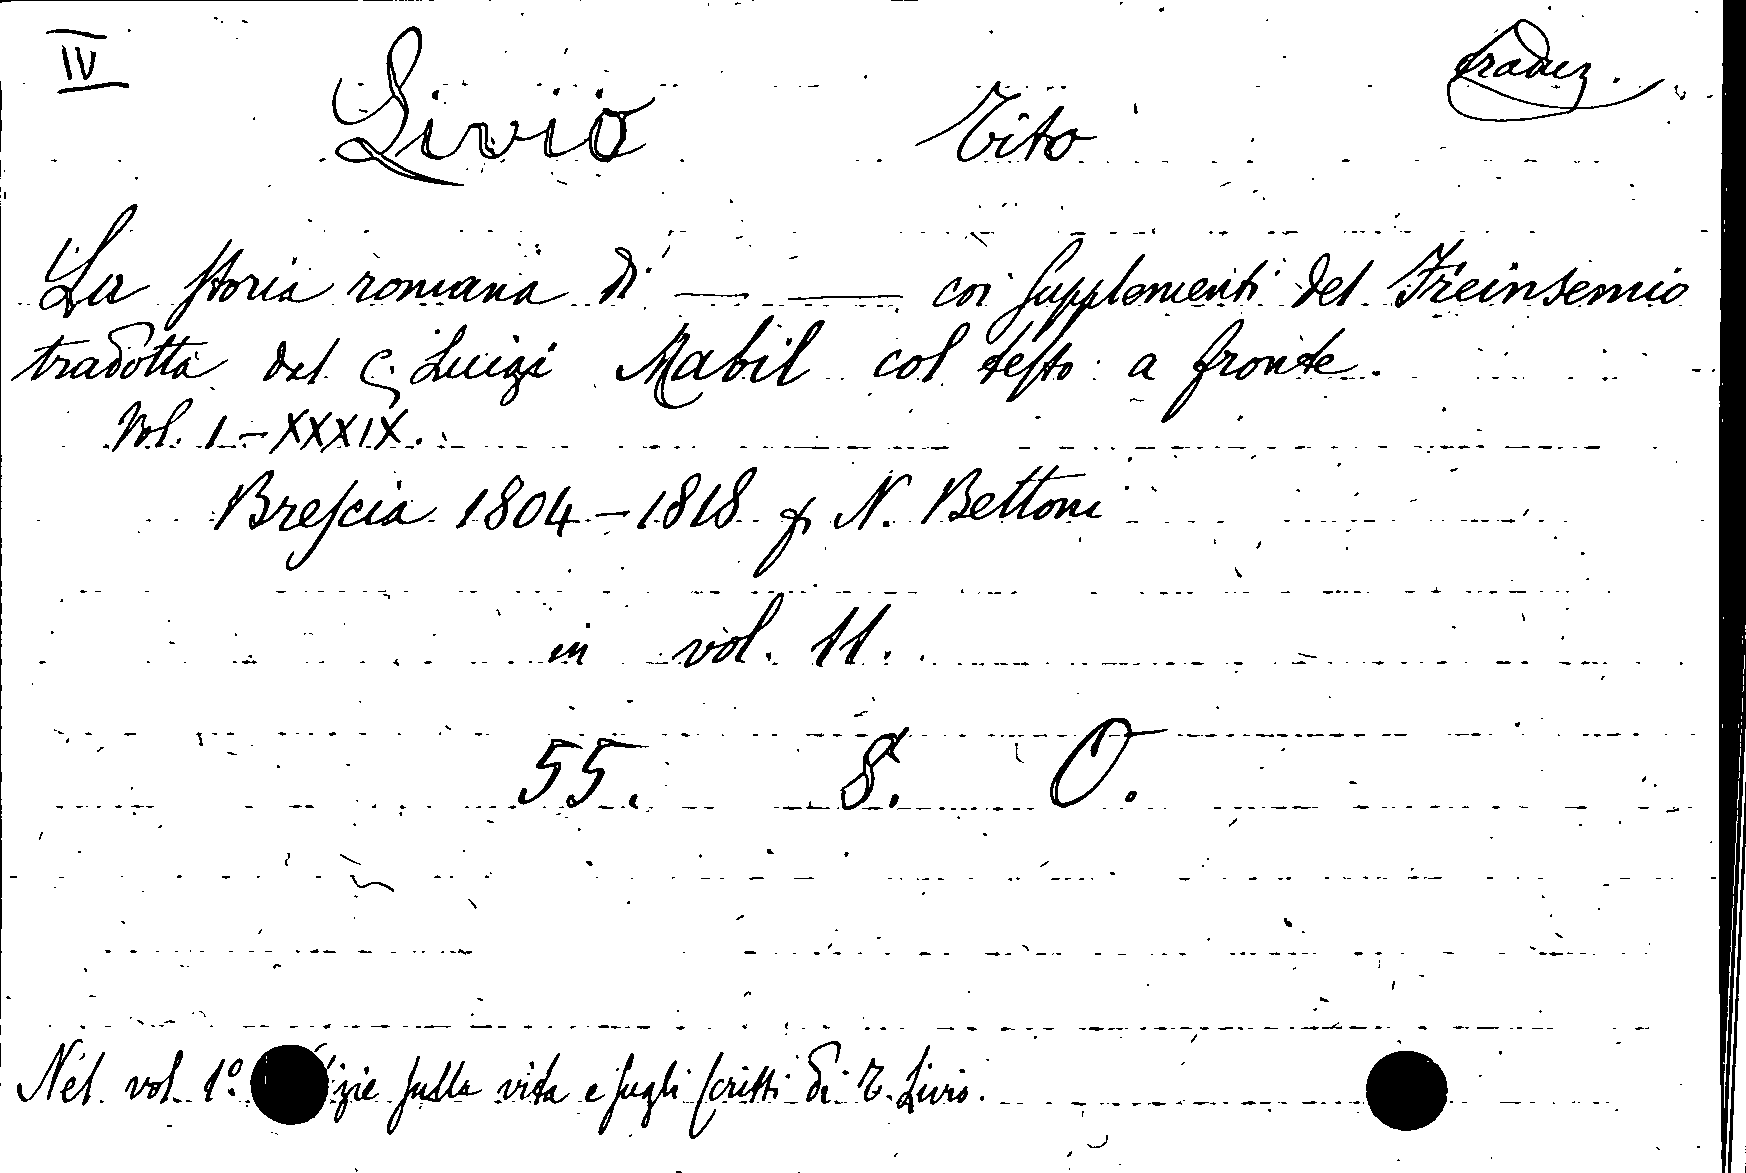 IV Livio Tito traduz.
La storia romana di — — coi supplementi del Freinsemio
tradotta dal C. Luigi Mabil col testo a fronte.
Vol. I-XXXIX.
Brescia 1804-1818 N. Bettoni
in vol. 11.
55. 8. O.
Nel vol. 1º sulla vita e sugli scritti di T. Livio.